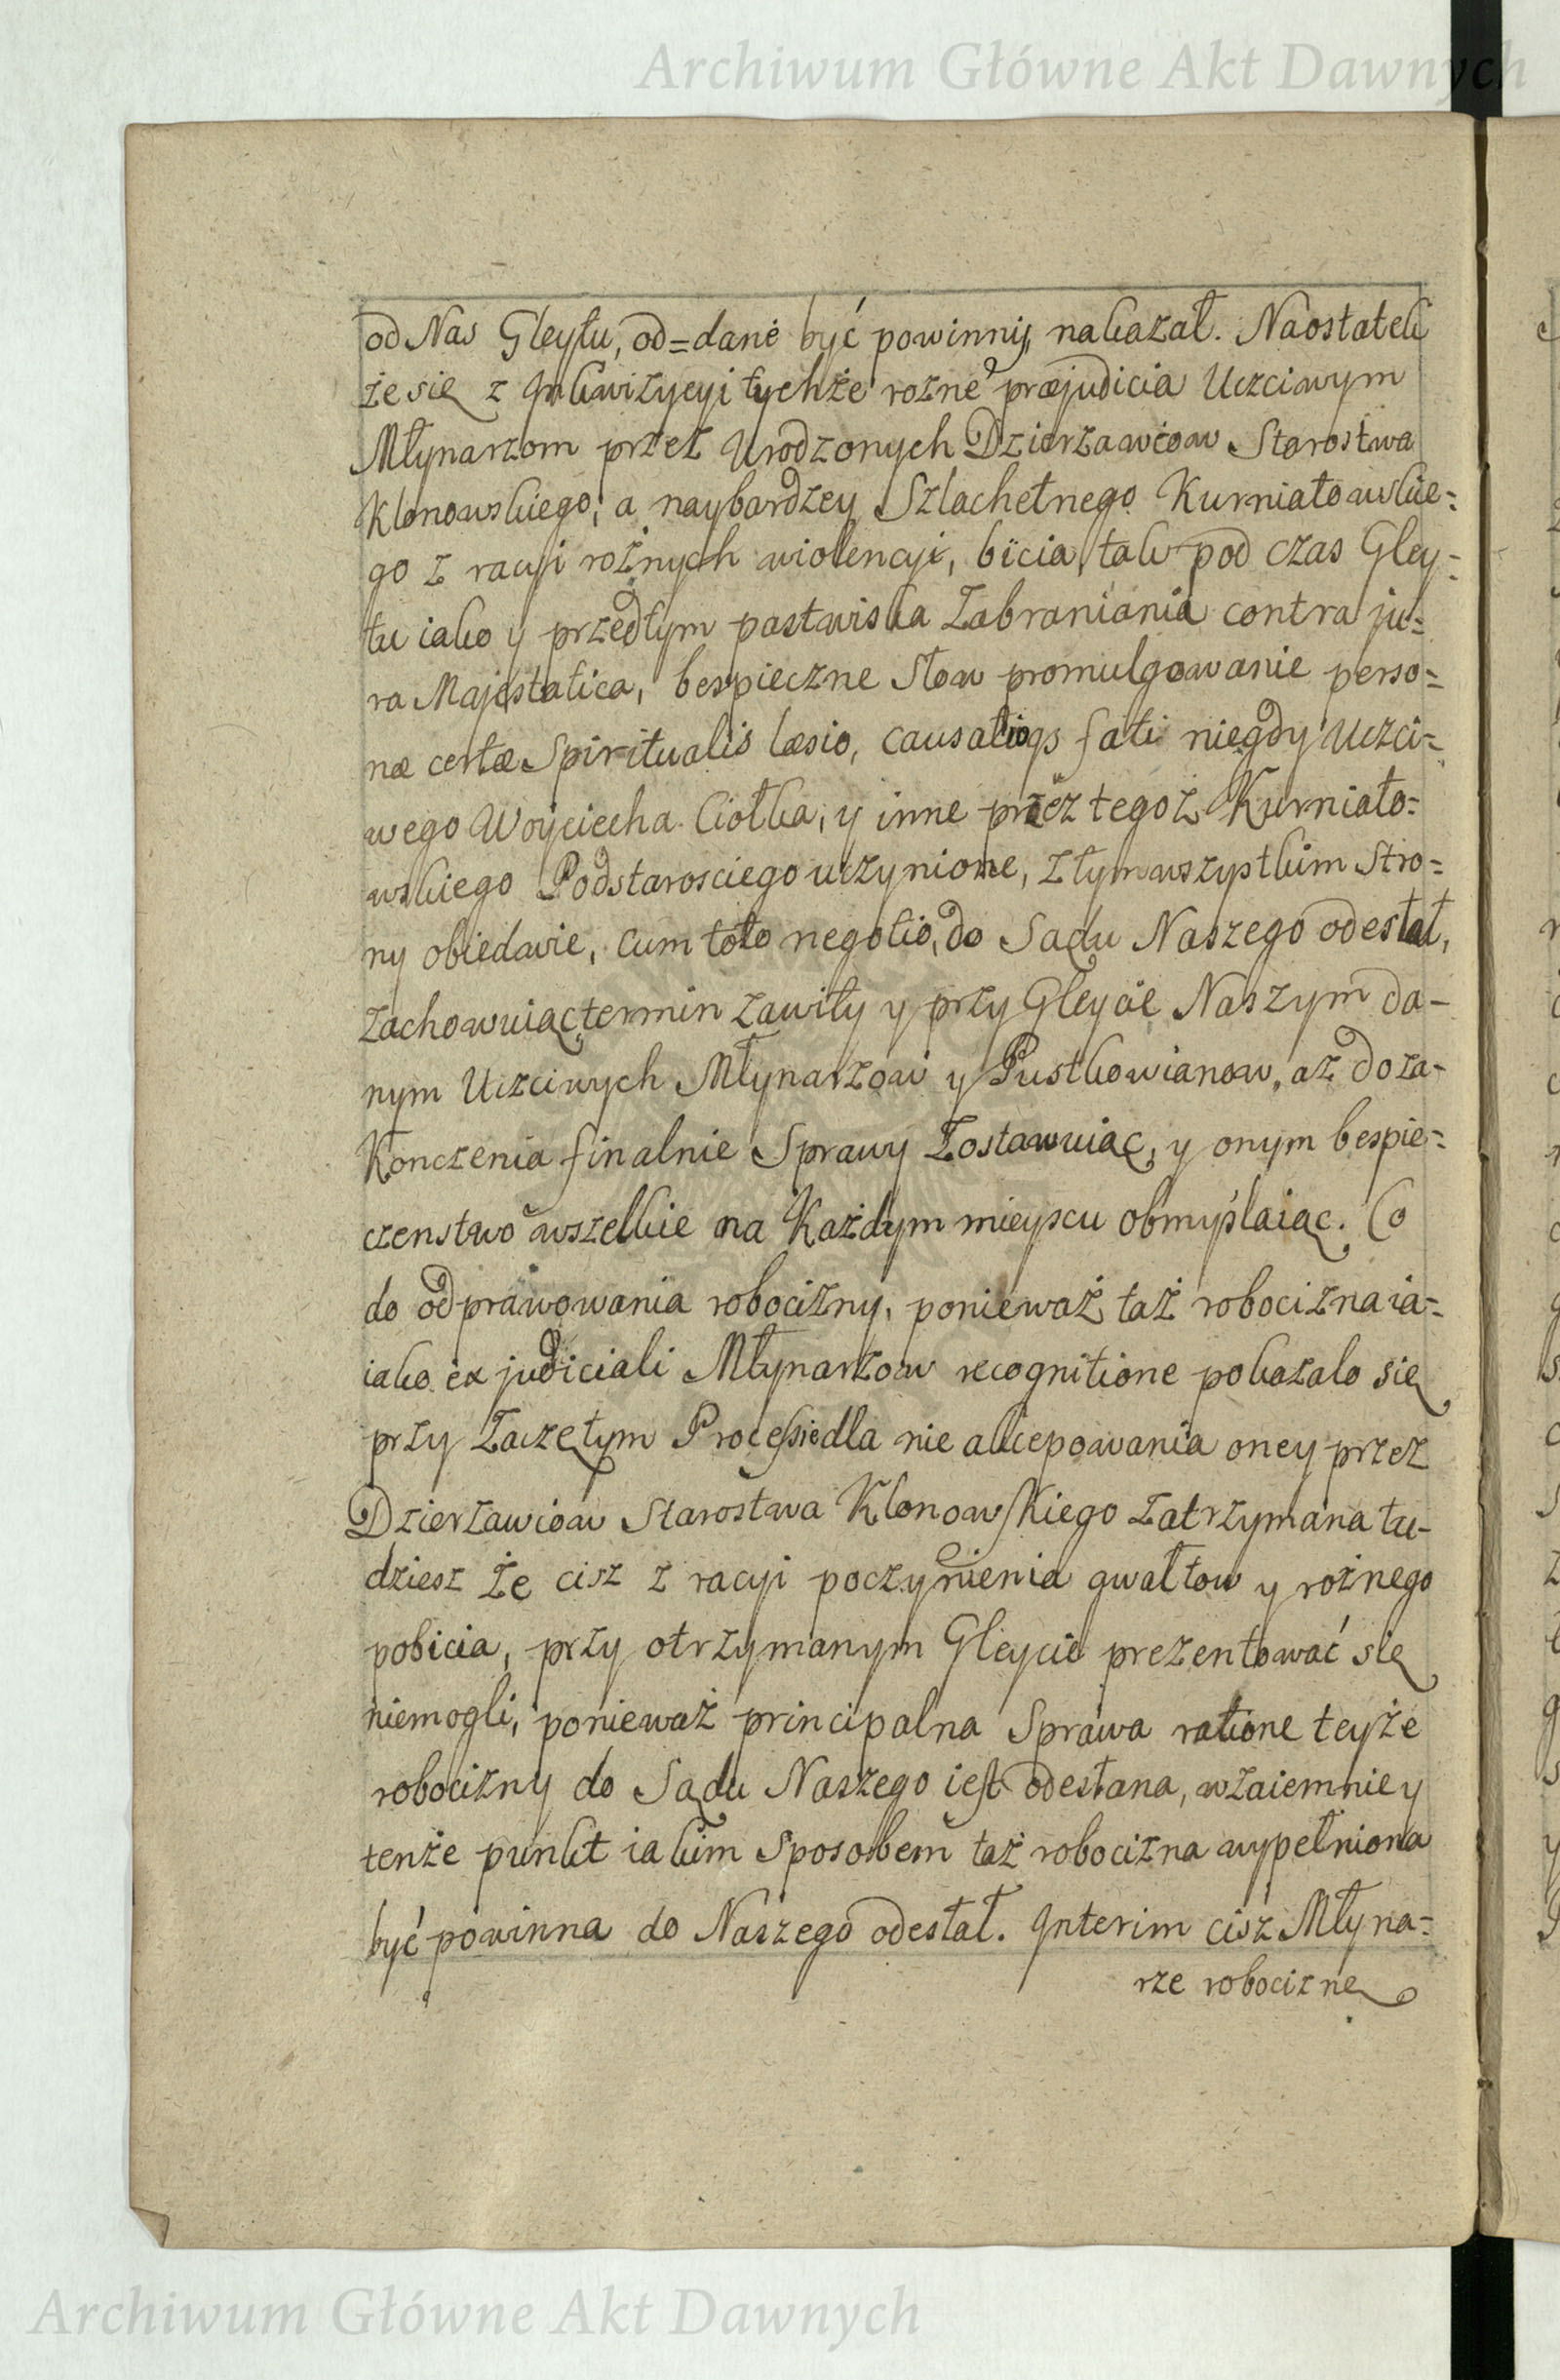 Archiwum Główne Akt Dawnych
od Nas Gleytu, od=dane być powinny, nakazał. Naostatek
że się z Inkwizycyi tychże rożne præjudicia Uczciwym
Młynarzom przez Urodzonych Dzierzawcow Starostwa
Klonowskiego, a naybardzey Szlachetnego Kurniatowskie=
go z racyi rożnych wiolencyi, bicia, tak pod czas Gley=
tu iako y przedtym pastwiska Zabraniania contra ju=
ra Majestatica, bespieczne Słow promulgowanie perso=
næ certæ Spiritualis læsio, causatioqs fati niegdy Uczci=
wego Woyciecha Ciołka, y inne przez tegoż Kurniato=
wskiego Podstarosciego uczynione, z tym wszystkim Stro=
ny obiedwie, cum toto negotio, do Sądu Naszego odesłał,
zachowuiąc termin zawity y przy Gleycie Naszym da=
nym Uczciwych Młynarzow y Pustkowianow, aż do za=
Konczenia finalnie Sprawy Zostawuiąc, y onym bespie=
czenstwo wszelkie na Każdym mieyscu obmyślaiąc. Co
do odprawowania robocizny, ponieważ taż robocizna ia=
iako ex judiciali Młynarzow recognitione pokazało się
przy Zaczętym Processie dla nie akcepowania oney przez
Dzierzawcow Starostwa Klonowskiego zatrzymana tu=
dziesz że cisz z racyi poczynienia gwałtow y rożnego
pobicia, przy otrzymanym Gleycie prezentować się
niemogli, ponieważ principalna Sprawa ratione teyże
robocizny do Sądu Naszego iest odesłana, wzaiemnie y
tenże punkt iakim Sposobem taż robocizna wypełniona
być powinna do Naszego odesłał. Interim cisz Młyna=
rze robociznę
Archiwum Główne Akt Dawnych